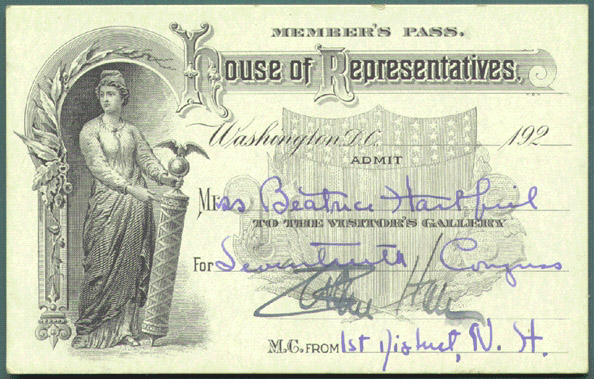 MEMBER'S PASS.
House of Representatives,
Washington D.C. 192
ADMIT
Miss Beatrice
TO THE VISITOR'S GALLERY
For Seventieth Congress
Hale
M.C. FROM 1st District, N. H.